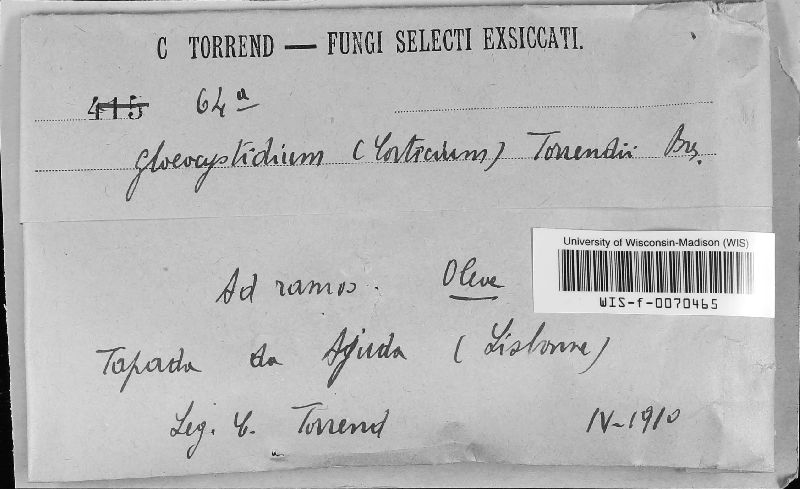 C TORREND — FUNGI SELECTI EXSICCATI.
415 64a
Gloeocystidium (Corticium) Torrendii Bres.
University of Wisconsin-Madison (WIS)
WIS-f-0070465
Ad ramos. Oleae
Tapada da Ajuda (Lisbonne)
Leg. C. Torrend IV-1910